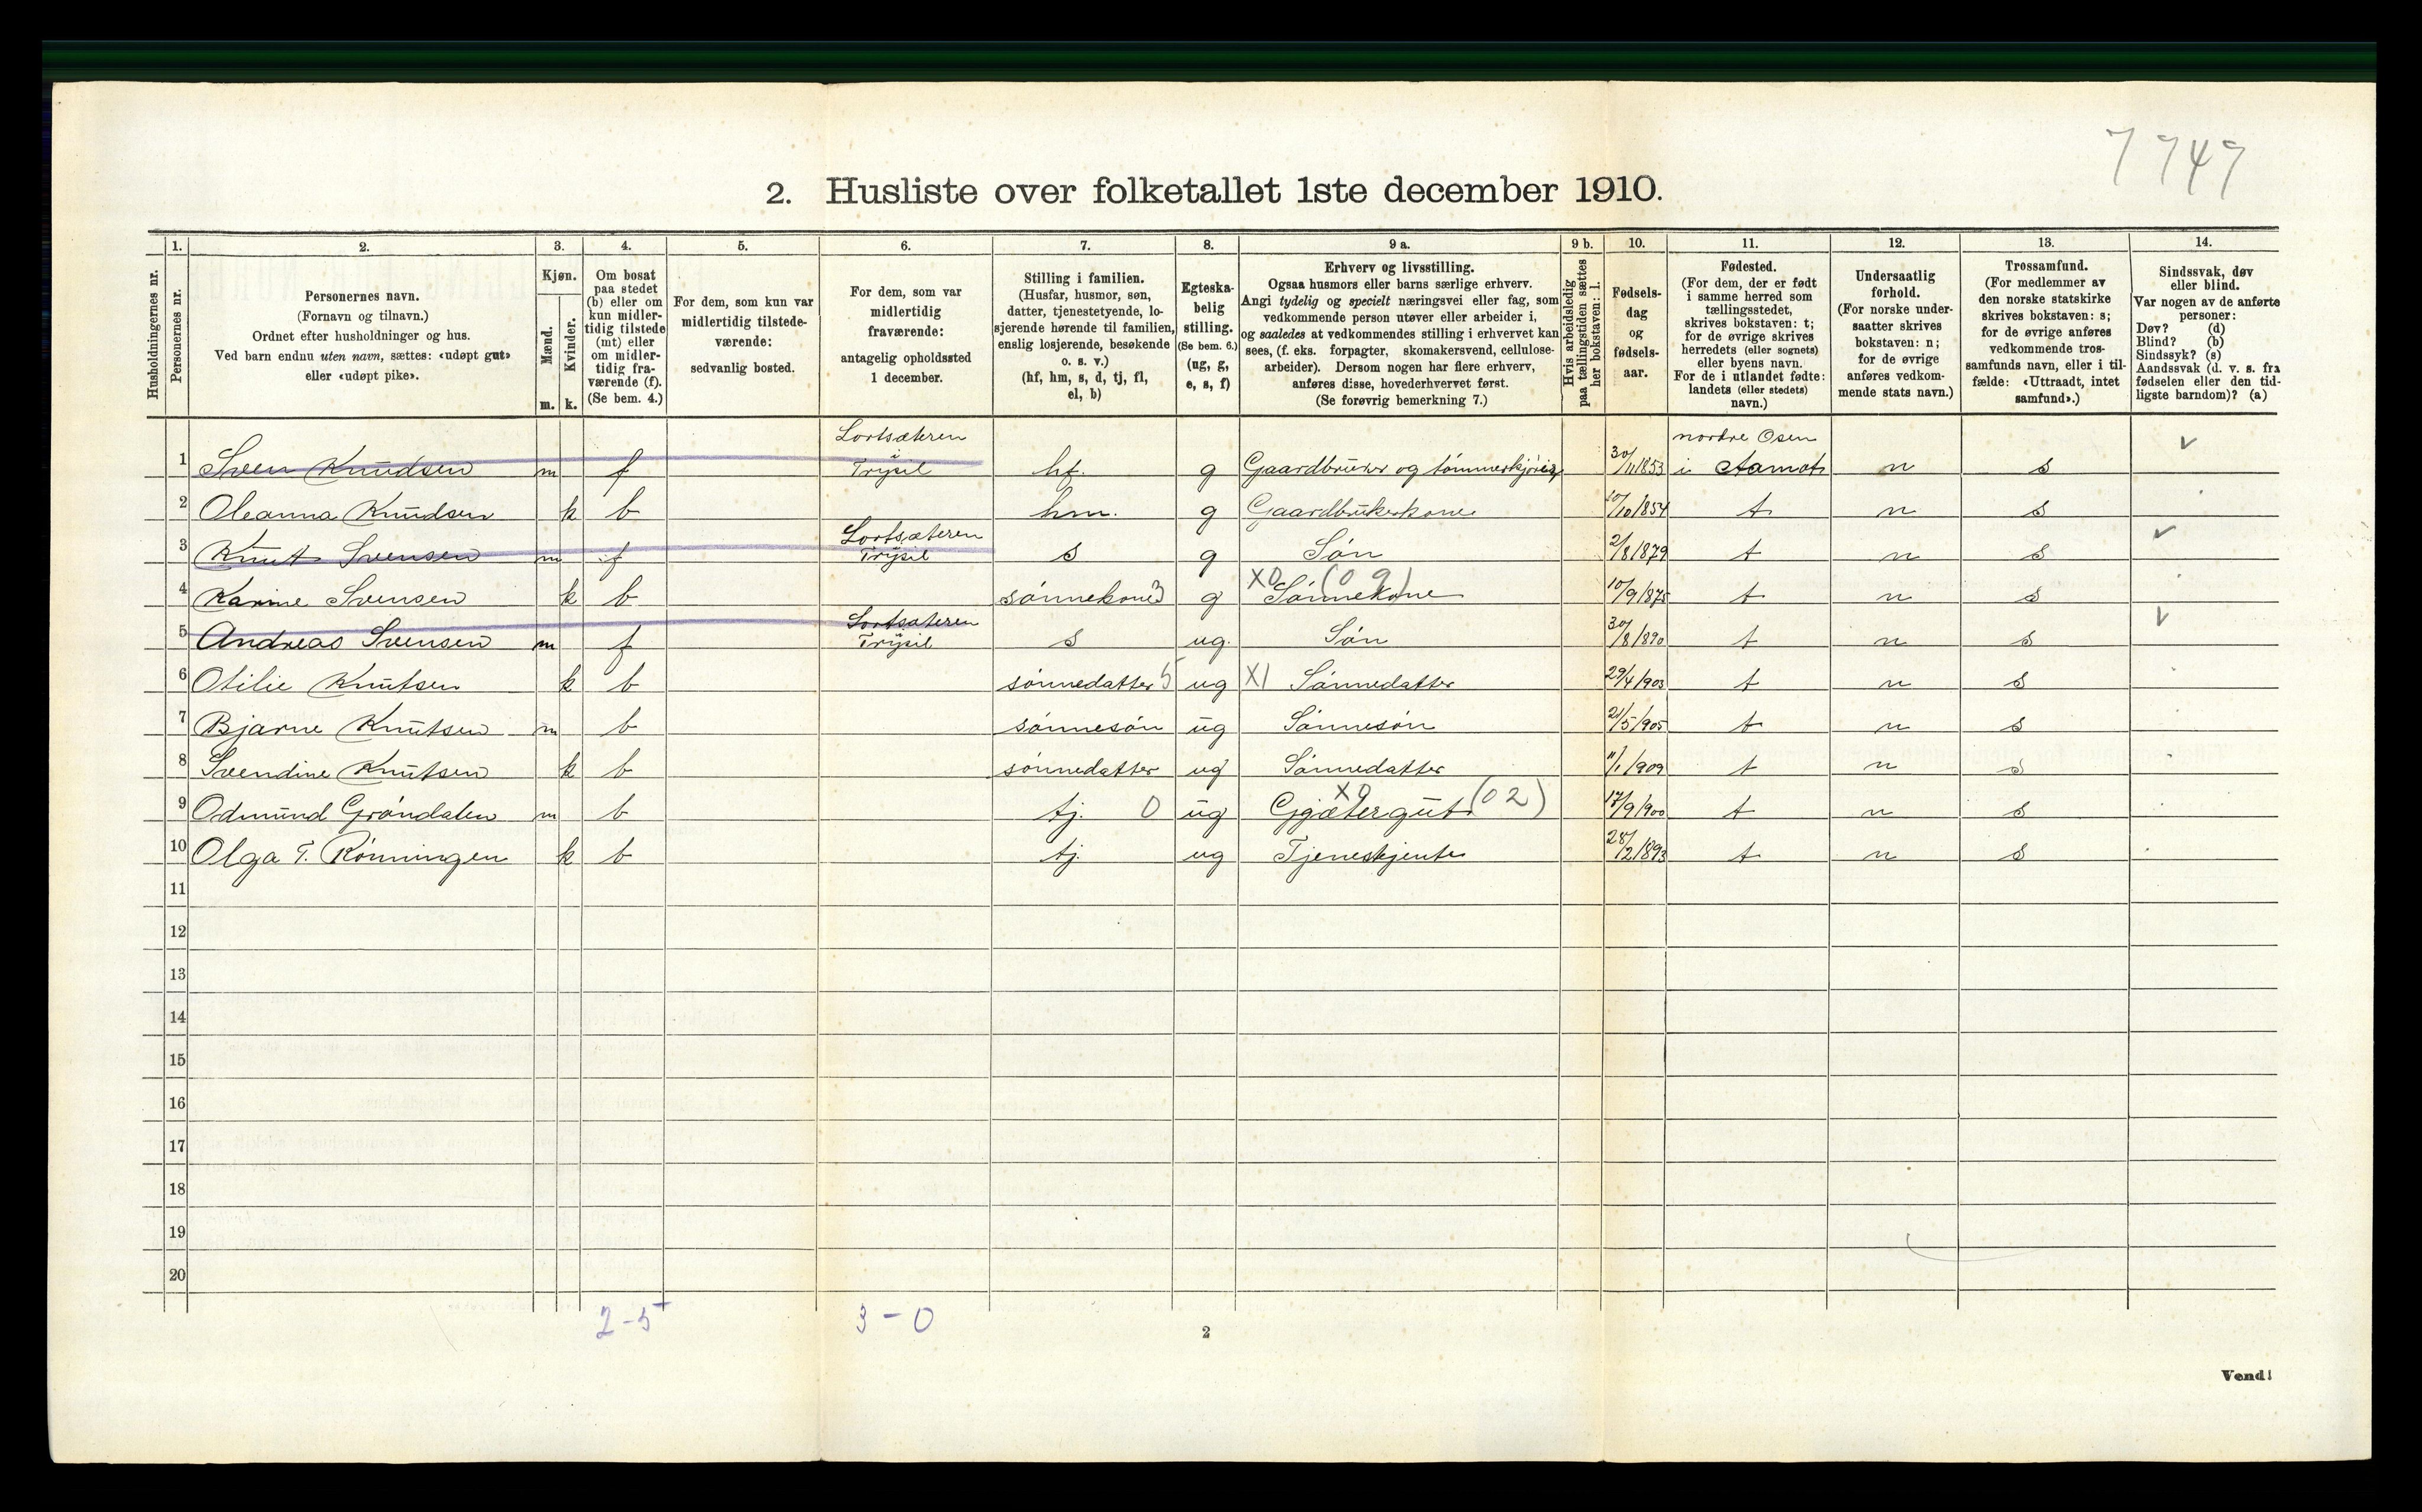 7747
2. Husliste over folketallet 1ste december 1910.
Husholdningernes nr.
1.
Personernes nr.
2.
Personernes navn.
(Fornavn og tilnavn.)
Ordnet efter husholdninger og hus.
Ved barn endnu uten navn, sættes: «udøpt gut»
eller «udøpt pike».
3.
Kjøn.
Mænd.
Kvinder.
m. k.
4.
Om bosat
paa stedet
(b) eller om
kun midler-
tidig tilstede
(mt) eller
om midler-
tidig fra-
værende (f).
(Se bem. 4.)
5.
For dem, som kun var
midlertidig tilstede-
værende:
sedvanlig bosted.
6.
For dem, som var
midlertidig
fraværende:
antagelig opholdssted
1 december.
7.
Stilling i familien.
(Husfar, husmor, søn,
datter, tjenestetyende, lo-
sjerende hørende til familien,
enslig losjerende, besøkende
o. s. v.)
(hf, hm, s, d, tj, fl,
el, b)
8.
Egteska-
belig
stilling.
(Se bem. 6.)
(ug, g,
e, s, f)
9 a.
Erhverv og livsstilling.
Ogsaa husmors eller barns særlige erhverv.
Angi tydelig og specielt næringsvei eller fag, som
vedkommende person utøver eller arbeider i,
og saaledes at vedkommendes stilling i erhvervet kan
sees, (f. eks. forpagter, skomakersvend, cellulose-
arbeider). Dersom nogen har flere erhverv,
anføres disse, hovederhvervet først.
(Se forøvrig bemerkning 7.)
9 b.
Hvis arbeidsledig
paa tællingstiden sættes
her bokstaven: l.
10.
Fødsels-
dag
og
fødsels-
aar.
11.
Fødested.
(For dem, der er født
i samme herred som
tællingsstedet,
skrives bokstaven: t;
for de øvrige skrives
herredets (eller sognets)
eller byens navn.
For de i utlandet fødte:
landets (eller stedets)
navn.)
12.
Undersaatlig
forhold.
(For norske under-
saatter skrives
bokstaven: n;
for de øvrige
anføres vedkom-
mende stats navn.)
13.
Trossamfund.
(For medlemmer av
den norske statskirke
skrives bokstaven: s;
for de øvrige anføres
vedkommende tros-
samfunds navn, eller i til-
fælde: «Uttraadt, intet
samfund».)
14.
Sindssvak, døv
eller blind.
Var nogen av de anførte
personer:
Døv? (d)
Blind? (b)
Sindssyk? (s)
Aandssvak (d. v. s. fra
fødselen eller den tid-
ligste barndom)? (a)
1 Sven Knudsen m f Lortsæteren i Trysil hf. g Gaardbruker og tømmerkjører 30/11 1853 nordre Osen i Aamot n s
2 Oleanna Knudsen k b hm. g Gaardbrukerkone 10/10 1854 t n s
3 Knut Svensen m f Lortsæteren Trysil s g Søn 2/8 1879 t n s
4 Karine Svensen k b sønnekone 3 g X0 (09) Sønnekone 10/9 1875 t n s
5 Andreas Svensen m f Lortsæteren Trysil s ug. Søn 30/8 1890 t n s
6 Otilie Knutsen k b sønnedatter 5 ug X1 Sønnedatter 29/4 1903 t n s
7 Bjarne Knutsen m b sønnesøn ug Sønnesøn 21/5 1905 t n s
8 Svendine Knutsen k b sønnedatter ug Sønnedatter 11/1 1909 t n s
9 Odmund Grøndalen m b tj. 0 ug Gjætergut X0 (02) 17/9 1900 t n s
10 Olga T. Rønningen k b tj. ug Tjenestjente 28/2 1893 t n s
11
12
13
14
15
16
17
18
19
20
2-5 3-0
2
Vend!